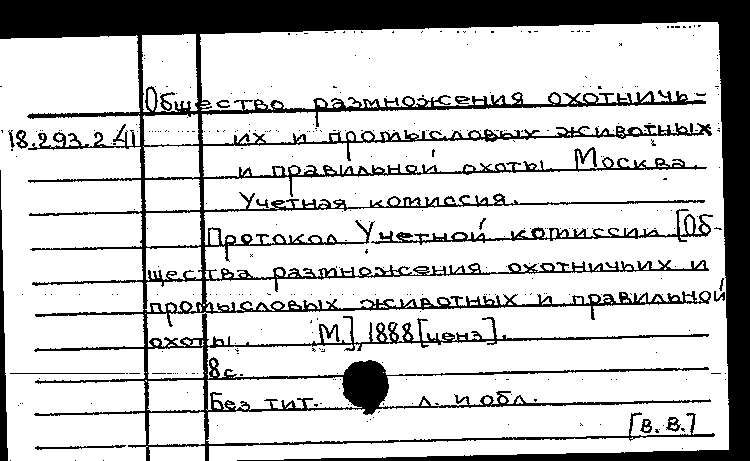 Общество размножения охотничь-
18.293.2.41 их и промысловых животных
и правильной охоты. Москва.
Учетная комиссия.
Протокол Учетной комиссии [Об-
щества размножения охотничьих и
промысловых животных и правильной
охоты. М.], 1888 [ценз].
8с.
Без тит. л. и обл.
[В. В.]